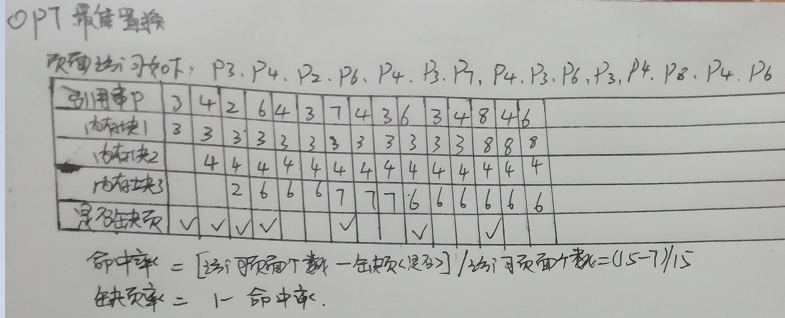 OPT 最佳置换
页面访问如下: P3、P4、P2、P6、P4、P3、P7、P4、P3、P6、P3、P4、P8、P4、P6
引用串P 3 4 2 6 4 3 7 4 3 6 3 4 8 4 6
内存块1 3 3 3 3 3 3 3 3 3 3 3 3 8 8 8
内存块2 4 4 4 4 4 4 4 4 4 4 4 4 4 4
内存块3 2 6 6 6 7 7 7 6 6 6 6 6 6
是否缺页 ✓ ✓ ✓ ✓ ✓ ✓ ✓
命中率 = [访问页面个数 - 缺页<是否>] / 访问页面个数 = (15-7)/15
缺页率 = 1- 命中率.